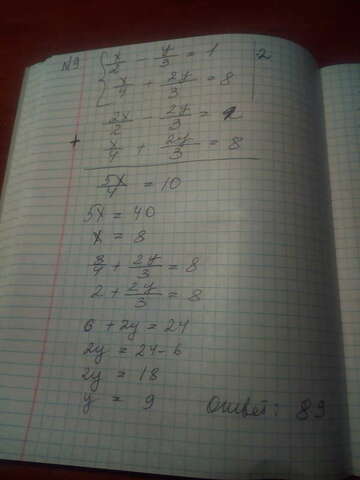 №9 { x/2 - y/3 = 1 | 2
x/4 + 2y/3 = 8
2x/2 - 2y/3 = 2
+ x/4 + 2y/3 = 8
5x/4 = 10
5x = 40
x = 8
8/4 + 2y/3 = 8
2 + 2y/3 = 8
6 + 2y = 24
2y = 24-6
2y = 18
y = 9 Ответ: 8 9